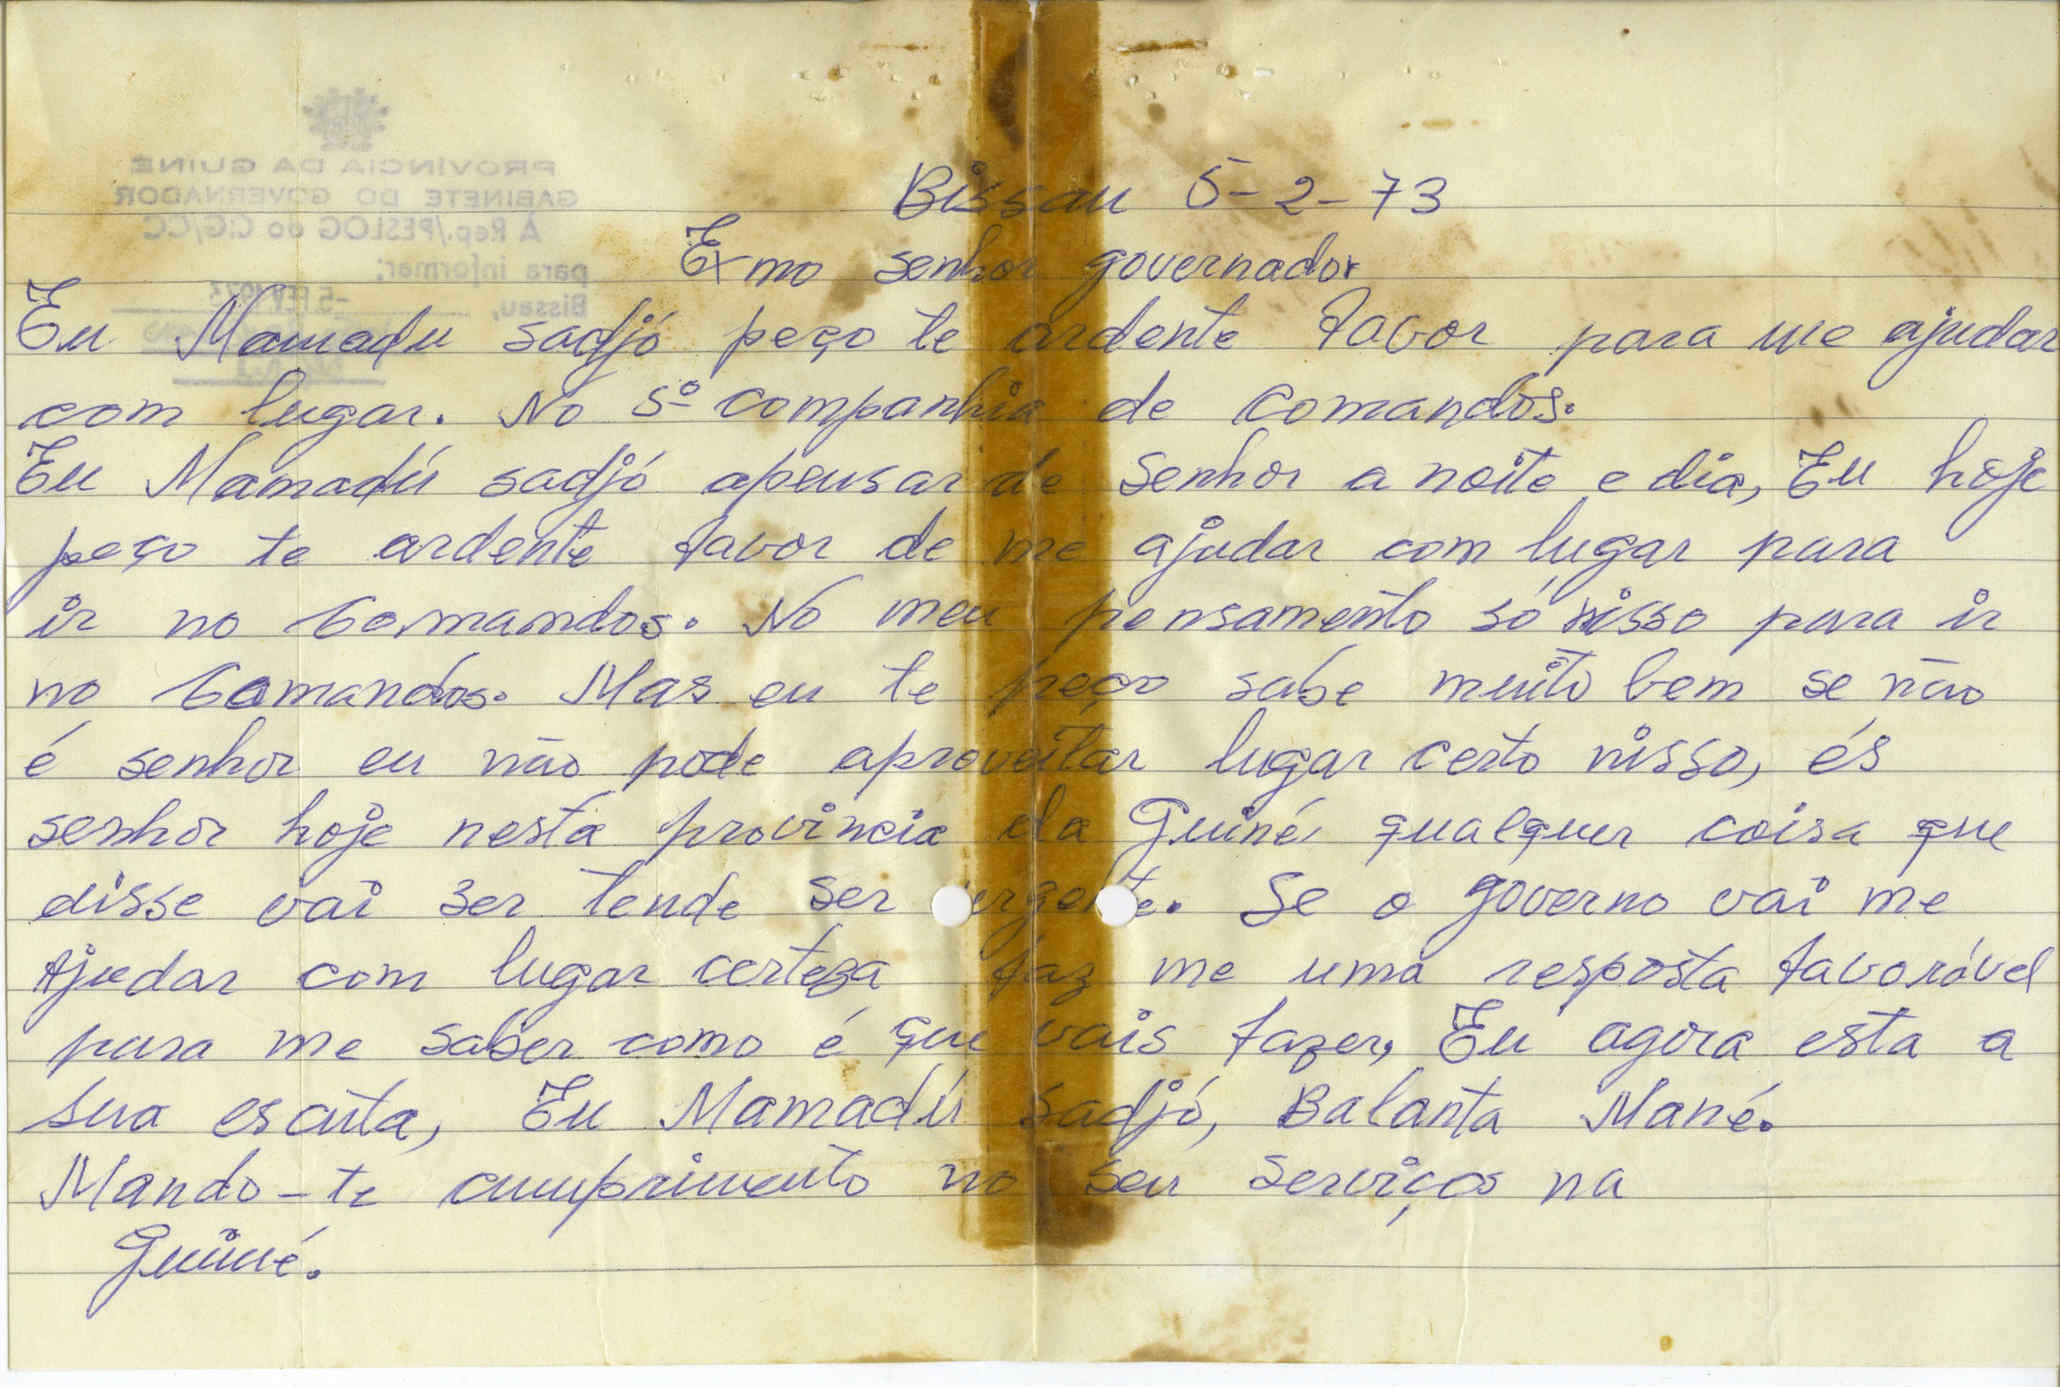 PROVÍNCIA DA GUINÉ
GABINETE DO GOVERNADOR
À Rep./PESLOG do CG/CC
para informar;
Bissau, -5 FEV 1973
Bissau 5-2-73
Exmo senhor governador
Eu Mamadu sadjó peço te ardente favor para me ajudar
com lugar. No 5º companhia de comandos.
Eu Mamadú sadjó apensar de senhor a noite e dia, Eu hoje
peço te ardente favor de me ajudar com lugar para
ir no Comandos. No meu pensamento só nisso para ir
no Comandos. Mas eu te peço sabe muito bem se não
é senhor eu não pode aproveitar lugar certo nisso, és
senhor hoje nesta provincia da Guiné qualquer coisa que
disse vai ser tende ser urgente. Se o governo vai me
Ajudar com lugar certeza faz me uma resposta favorável
para me saber como é que vais fazer, Eu agora esta a
sua escuta, Eu Mamadú sadjó, Balanta Mané.
Mando-te cumprimento no seu serviços na
Guiné.